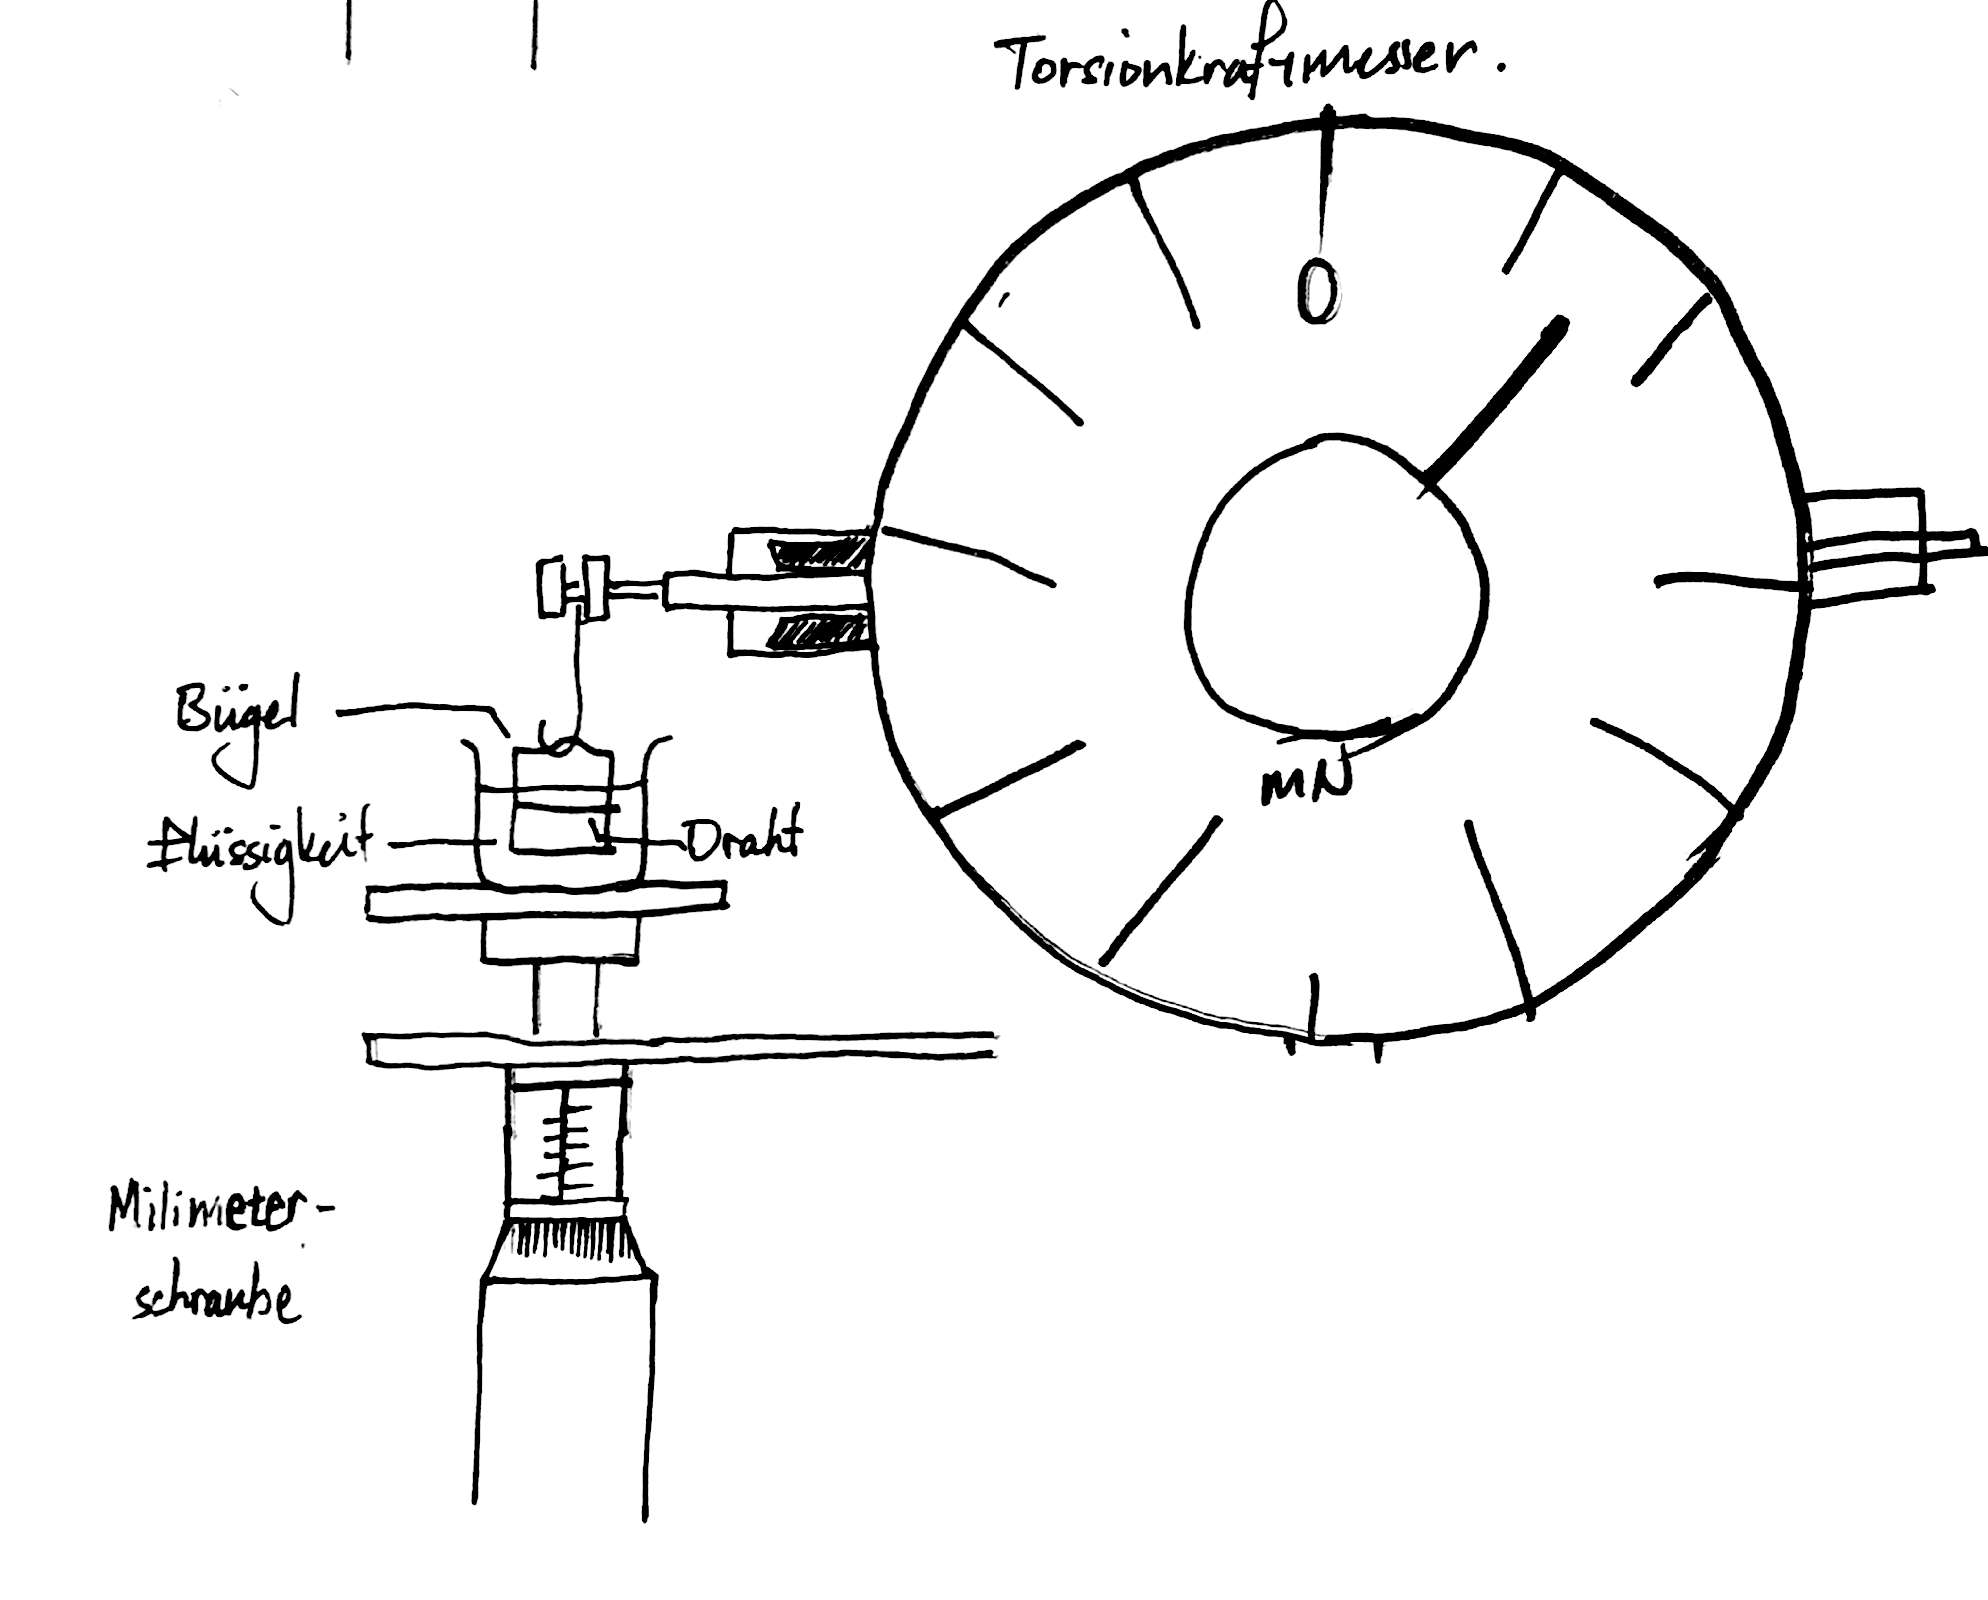 Torsionkraftmesser.
0
Bügel
mN
Flüssigkeit
Draht
Milimeter-
schraube